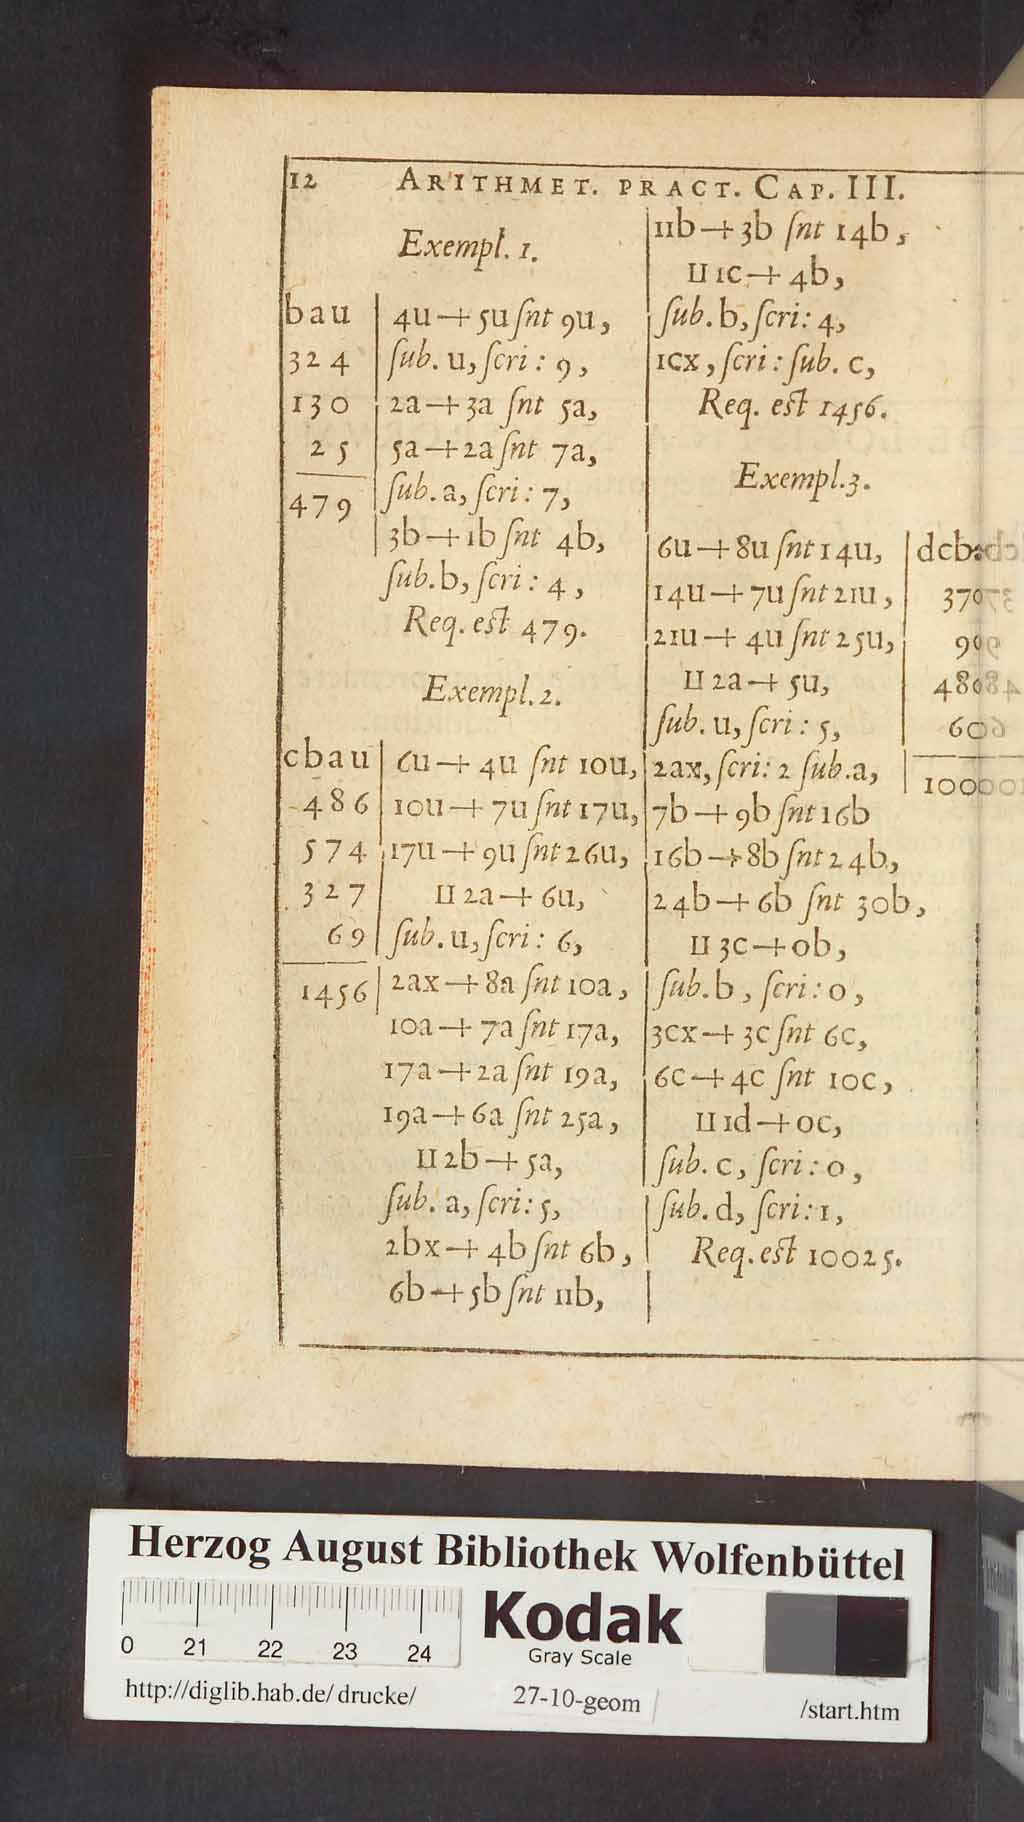 12 ARITHMET. PRACT. CAP. III.
Exempl. 1.
bau | 4u + 5u ſnt 9u,
324 | ſub. u, ſcri: 9,
130 | 2a + 3a ſnt 5a,
25 | 5a + 2a ſnt 7a,
479 | ſub. a, ſcri: 7,
3b + 1b ſnt 4b,
ſub. b, ſcri: 4,
Req. est 479.
Exempl. 2.
cbau | 6u + 4u ſnt 10u,
486 | 10u + 7u ſnt 17u,
574 | 17u + 9u ſnt 26u,
327 | II 2a + 6u,
69 | ſub. u, ſcri: 6,
1456 | 2ax + 8a ſnt 10a,
10a + 7a ſnt 17a,
17a + 2a ſnt 19a,
19a + 6a ſnt 25a,
II 2b + 5a,
ſub. a, ſcri: 5,
2bx + 4b ſnt 6b,
6b + 5b ſnt 11b,
11b + 3b ſnt 14b,
II 1c + 4b,
ſub. b, ſcri: 4,
1cx, ſcri: ſub. c,
Req. est 1456.
Exempl. 3.
6u + 8u ſnt 14u, | dcb
14u + 7u ſnt 21u, | 370
21u + 4u ſnt 25u, | 90
II 2a + 5u, | 480
ſub. u, ſcri: 5, | 60
2ax, ſcri: 2 ſub. a, | 100
7b + 9b ſnt 16b
16b + 8b ſnt 24b,
24b + 6b ſnt 30b,
II 3c + 0b,
ſub. b, ſcri: 0,
3cx + 3c ſnt 6c,
6c + 4c ſnt 10c,
II 1d + 0c,
ſub. c, ſcri: 0,
ſub. d, ſcri: 1,
Req. est 10025.
Herzog August Bibliothek Wolfenbüttel
Kodak
Gray Scale
0 21 22 23 24
http://diglib.hab.de/drucke/ 27-10-geom /start.htm